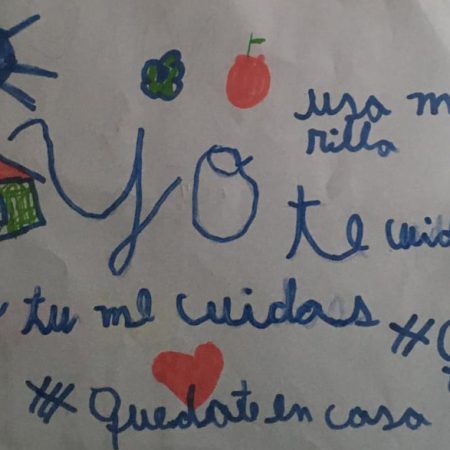 usa m
rilla
Yo te cuid
tu me cuidas
#
#Quedate en casa